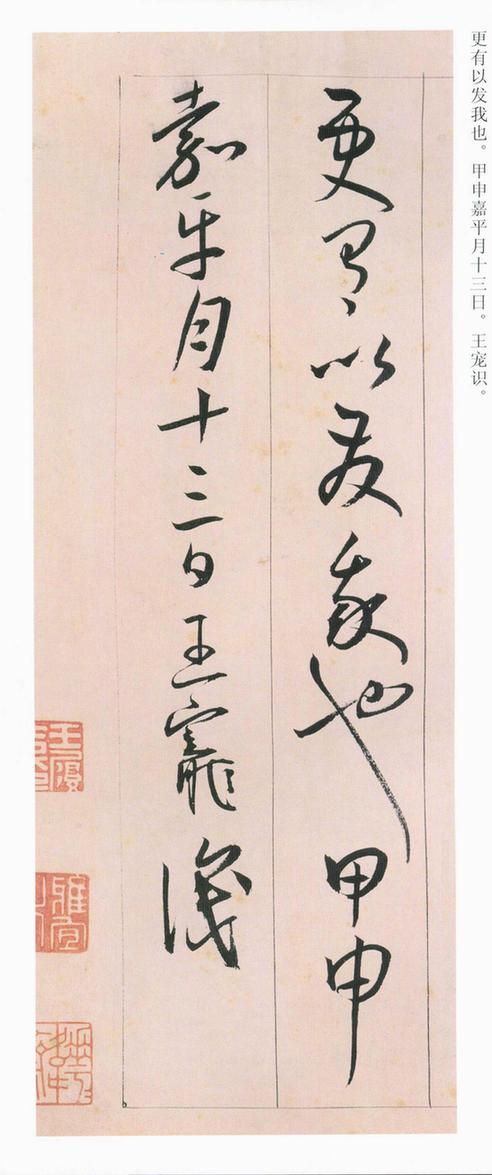 更有以发我也。甲申嘉平月十三日。王宠识。
更有以發我也甲申
嘉平月十三日王寵識